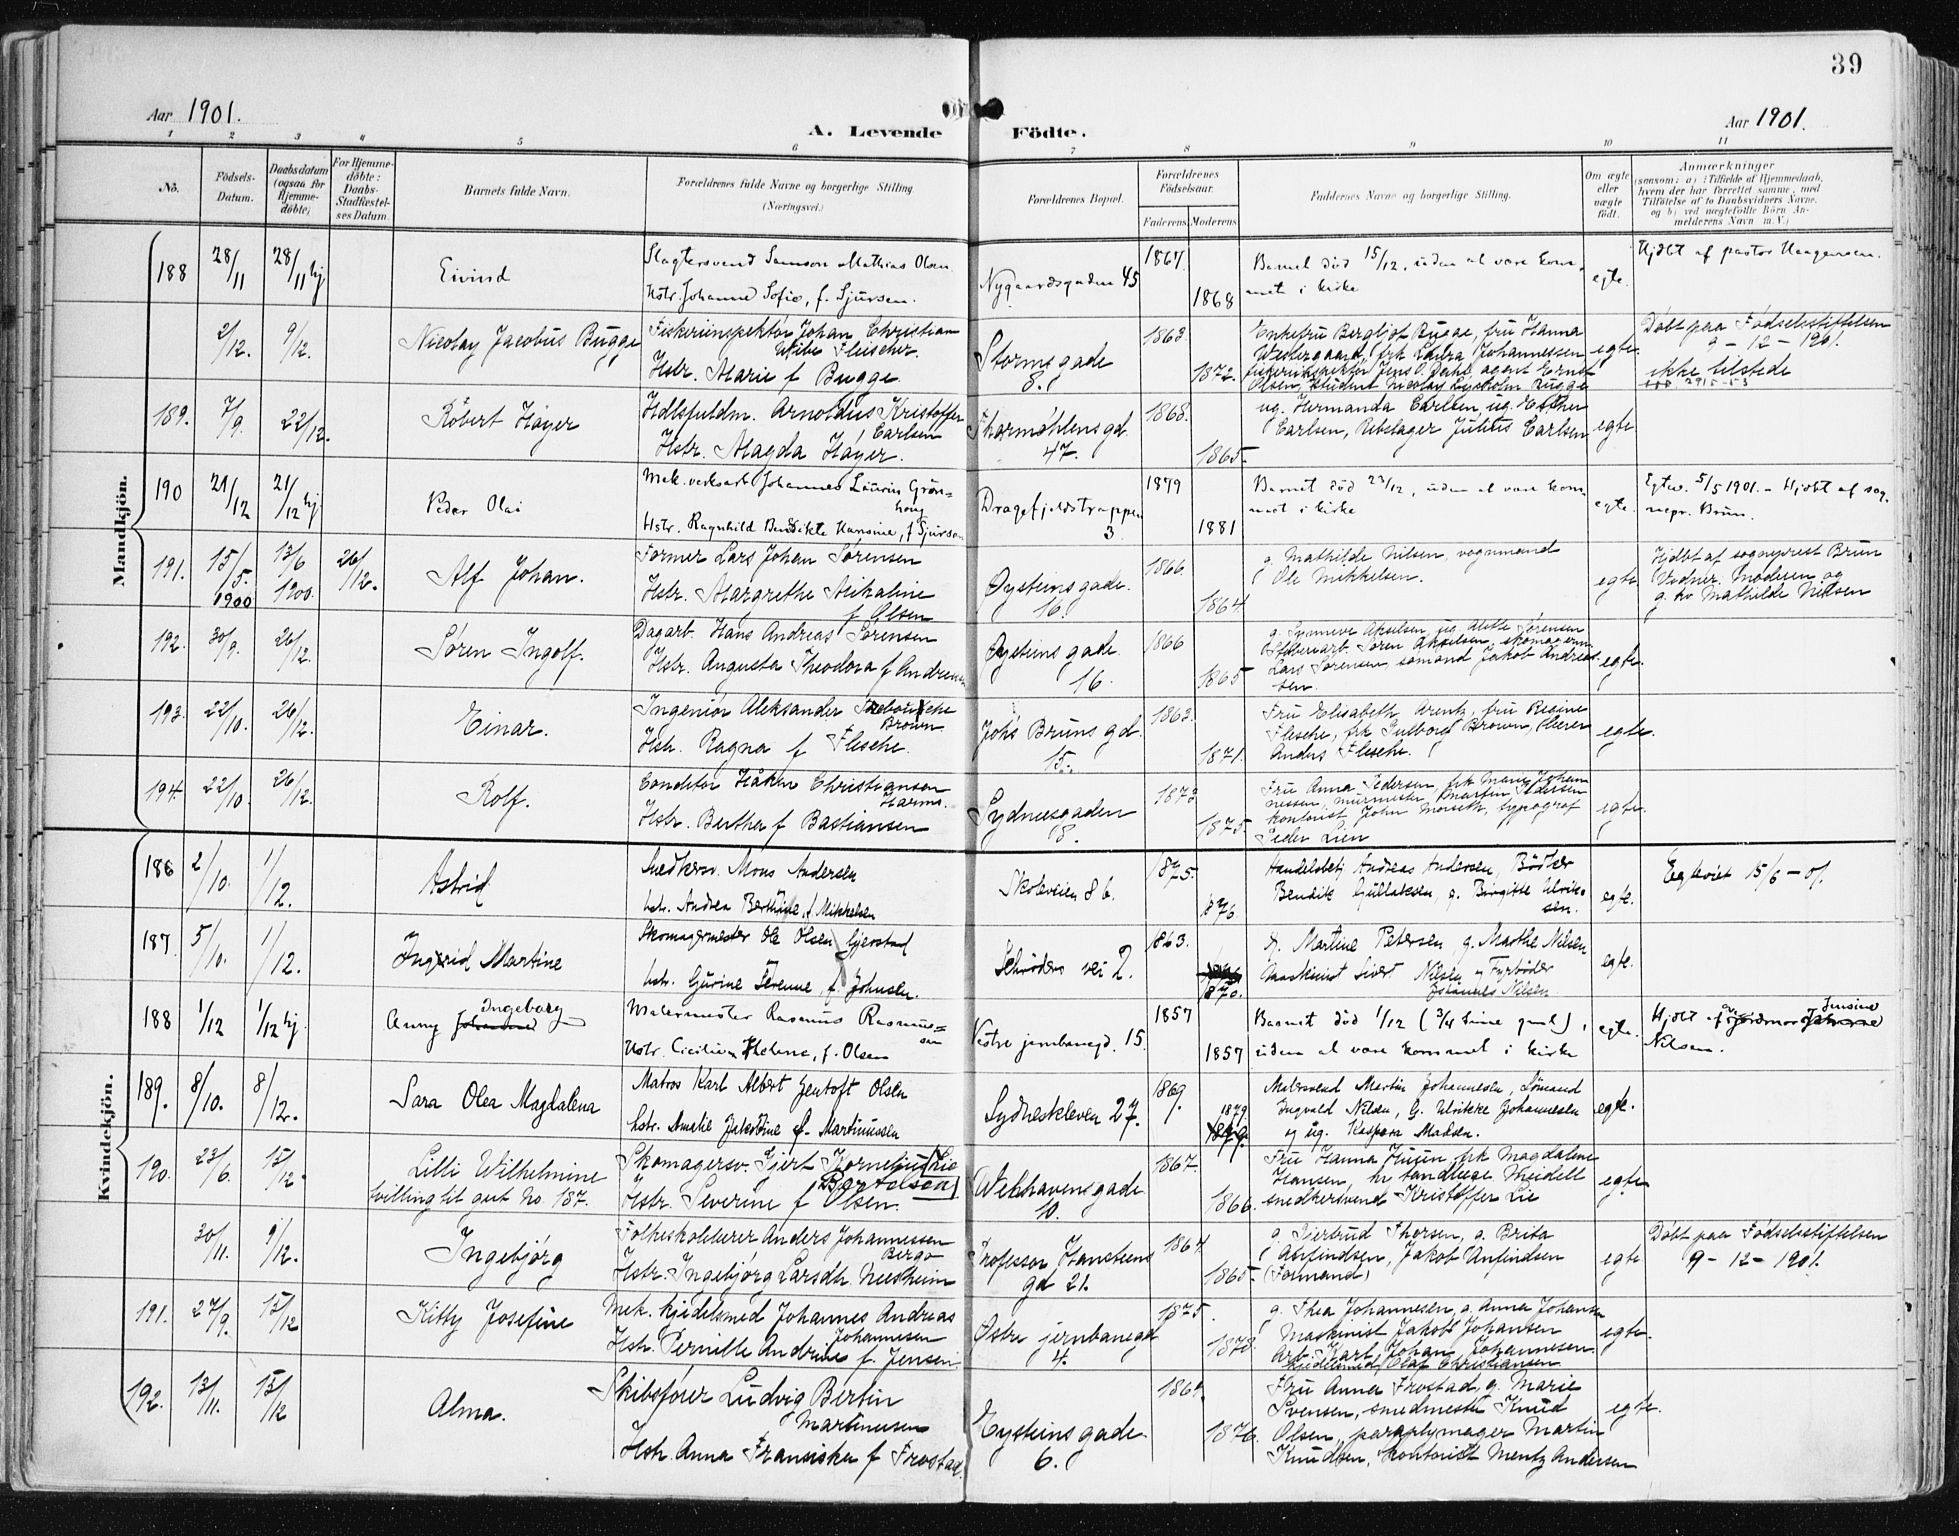 39
Aar 1901.
A. Levende Födte.
Aar 1901.
1 2 3 4 5 6 7 8 9 10 11
No.
Födsels-Datum.
Daabsdatum (ogsaa for Hjemme-döbte)
For Hjemme-döbte: Daabs-Stadfæstel-ses Datum.
Barnets fulde Navn.
Forældrenes fulde Navne og borgerlige Stilling. (Næringsvei.)
Forældrenes Bopæl.
Forældrenes Födselsaar.
Faderens. Moderens.
Faddernes Navne og borgerlige Stilling.
Om ægte eller uægte født.
Anmærkninger (saasom: a) i Tilfælde af Hjemmedaab, hvem der har forrettet samme, med Tilföielse af to Daabsvidners Navne, og b) ved uægtefödte Börn An-melderens Navn m. V.)
Mandkjön.
188 28/11 28/11 hj
Eivind
Slagtersvend Samson Mathias Olsen
Hstr. Johanne Sofie, f. Sjursen.
Nygaardsgaden 45
1867 1868
Barnet död 15/12, uden at være kom-
met i kirke
egte.
Hjdbt af pastor Haagensen.
2/12. 9/12.
Nicolay Jacobus Bugge
Fiskeriinspektør Johan Christian
Wibe Fleischer
Hstr. Marie f Bugge
Stormsgade
8.
1863 1872.
Enkefru Bergljot Bugge, fru Hanna
Westergaard, frk Laura Johannessen
fiskeriinspektør Jens O. Dahl, agent Ernst
Olsen, student Nicolay Lysholm Bugge
egte.
Døbt paa Fødselsstiftelsen
9-12-1901.
ikke tilstede
189. 7/9. 22/12.
Robert Høyer
Hdlsfuldm. Arnoldus Kristoffer
Carlsen
Hstr. Magda Høyer.
Thormøhlensgd.
47.
1868. 1865.
ug. Hermanda Carlsen, ug. Esther
Carlsen, Rebslager Julius Carlsen
egte
190 21/12 21/12 hj
Peder Olai
Mek. verksarb Johannes Laurin Grøn-
haug
Hstr. Ragnhild Bendikte Hansine, f Sjursen
Dragefjeldstrappen
3.
1879 1881
Barnet död 23/12, uden at være kom-
met i kirke
egte.
Egtev. 5/5 1901. - Hjdbt af sog-
nepr. Brun.
191. 15/5. 1900 13/6 1900. 26/12.
Alf Johan.
Former Lars Johan Sørensen
Hstr. Margrethe Mikaline
f Olsen
Øysteinsgade.
16.
1866. 1864
g. Mathilde Nilsen, vognmand
Ole Mikkelsen.
egte
Hjdbt af sogneprest Brun
Vidner: Moderen og
g. kv Mathilde Nilsen
192. 30/9. 26/12.
Søren Ingolf.
Dagarb. Hans Andreas Sørensen
Hstr. Augusta Theodora f Andresen
Øysteinsgade.
16.
1866 1865
g. Synneve Akselsen, ug. Mette Sørensen
Søren Akselsen, skomagersv.
Lars Sørensen, sømand Jakob Andreas-
sen.
egte.
193. 22/10. 26/12.
Einar.
Ingeniør Aleksander
Brown
Hstr. Ragna f Flesche.
Johs Brunsgd.
15.
1863. 1871.
Fru Elisabeth Arentz, fru Regine
Flesche, frk Gulborg Brown,
Anders Flesche.
egte.
194. 22/10. 26/12.
Rolf.
Conditor Håken Christianson
Harms.
Hstr. Berthe f Bastiansen
Sydnesgaden
18.
1873 1875.
Fru Anna Pedersen, frk Marie Johan-
nessen, murmester Martin Pedersen
kontorist John Morseth, typograf
Peder Lien
egte.
Kvindekjön.
186 2/10. 1/12.
Astrid
Snedkersv. Mons Andersen
hstr. Andrea Berthine, f. Mikkelsen
Skoleveien 8 b.
1875. 1876
Handelsbetj Andreas Andersen, Bødker
Bendik Gullaksen, g. Birgitte Ulrik-
sen.
egte.
Egteviet 15/6-01.
187 5/10. 1/12.
Ingrid Martine
Skomagermester Ole Olsen Gjerstad
hstr. Gurine Serenne, f. Johnsen.
Schrøders vei 2.
1863. 1870.
g. Martine Petersen g. Marthe Nilsen
Maskinist Sivert Nilsen og Fyrbøder
Johannes Nilsen
egte.
188 1/12 1/12 hj
Anny Ingeborg
Malermester Rasmus Rasmus-
sen
Hstr. Cicilie Helene, f. Olsen
Vestre jernbanegd. 15.
1857 1857
Barnet död 1/12 (3/4 time gml),
uden at være kommet i kirke
egte.
Hjdbt af jordmor Jensine
Nilsen.
189. 8/10. 8/12.
Sara Olea Magdalena
Matros Karl Albert Gentoft Olsen
hstr. Amalie Jakobine f. Martinussen
Sydneskleven 27.
1869. 1879
Malersvend Martin Johannesen, Sømand
Ingvald Nilsen, G. Ulrikke Johannesen
og ug. Kaspara Madsen.
egte.
190. 23/6. 15/12.
Lilli Wilhelmine
tvilling til gut No. 187.
Skomagersv. Gjert Kornelius Lie
Bertelsen
Hstr. Severine f Olsen.
Welhavensgade
10.
1867. 1866.
Fru Hanna Husen, frk Magdalene
Hansen, hr tandlæge Meidell
snedkersvend Kristoffer Lie
egte
30/11. 9/12.
Ingebjørg
Folkeskolelærer Anders Johannessen
Bergo
Hstr. Ingebjørg Larsdtr. Neesheim
Professor Hansteens
gd 21.
1864. 1865.
g. Gjertrud Thorsen, g. Brita
Anfindsen, Jakob Anfindsen
(Formand)
egte
Døbt paa Fødselsstiftelsen
9-12-1901.
191. 27/9. 15/12
Kitty Josefine
Mek. kjedelsmed Johannes Andreas
Johannesen
Hstr. Pernille Andrine f. Jensen
Østre jernbanegd
4.
1875. 1878.
g. Thea Johannesen, g. Anna Johansen
Maskinist Jakob Johansen
Arb. Karl Johan Johannesen
kjedelsmed Olaf Christiansen
egte.
192. 13/11. 15/12
Alma.
Skibsfører Ludvig Bertin
Martinussen
Hstr. Anna Fransiska f Frostad.
Eysteinsgade.
6.
1864. 1876.
Fru Anna Frostad, g. Marie
Svensen, smedmester Knud
Olsen, paraplymager Martin
Knudsen, kontorist Mentz Andersen
egte.